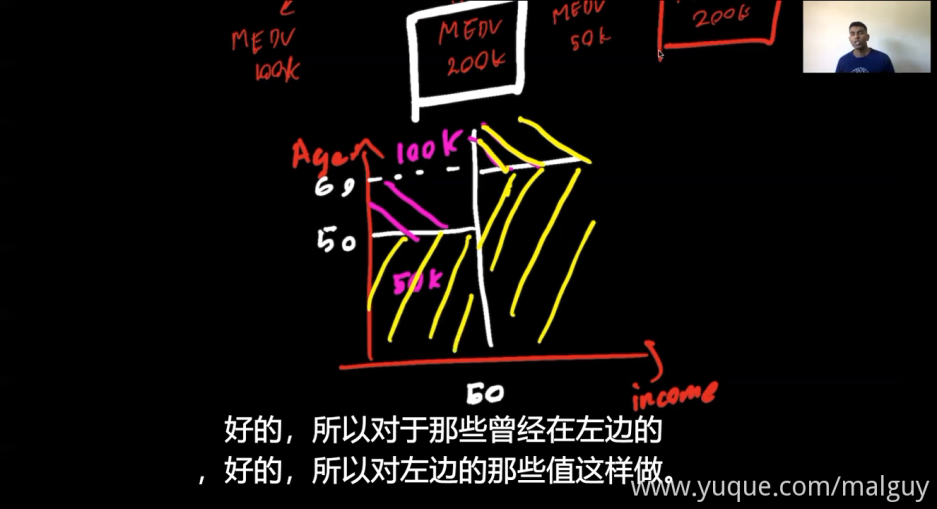 MEDV
100k
MEDV
200k
MEDV
50k
200k
Age
100K
60
50
50k
50
income
好的，所以对于那些曾经在左边的
，好的，所以对左边的那些值这样做。
www.yuque.com/malguy